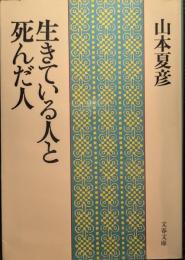 山本夏彦
生きている人と
死んだ人
文春文庫